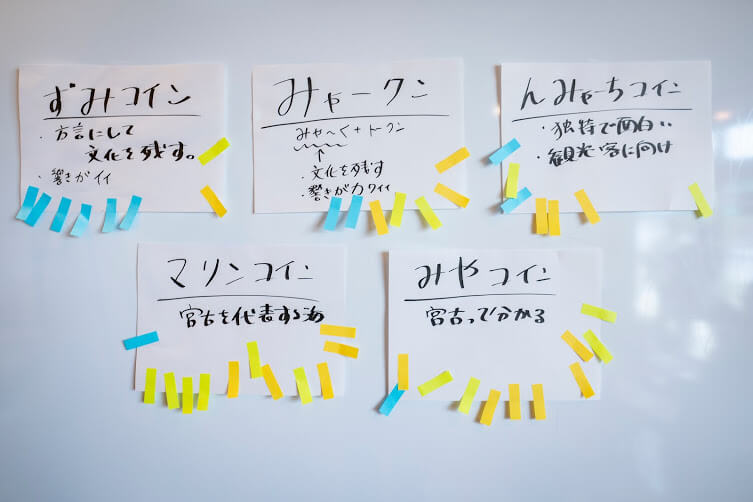 ずみコイン
・方言にして
文化を残す。
・響きがイイ
みゃークン
みゃ〜く+トークン
↑
・文化を残す
・響きがカワイイ
んみゃーちコイン
・独特で面白い
・観光客に向け
マリンコイン
宮古を代表する海
みやコイン
宮古って分かる